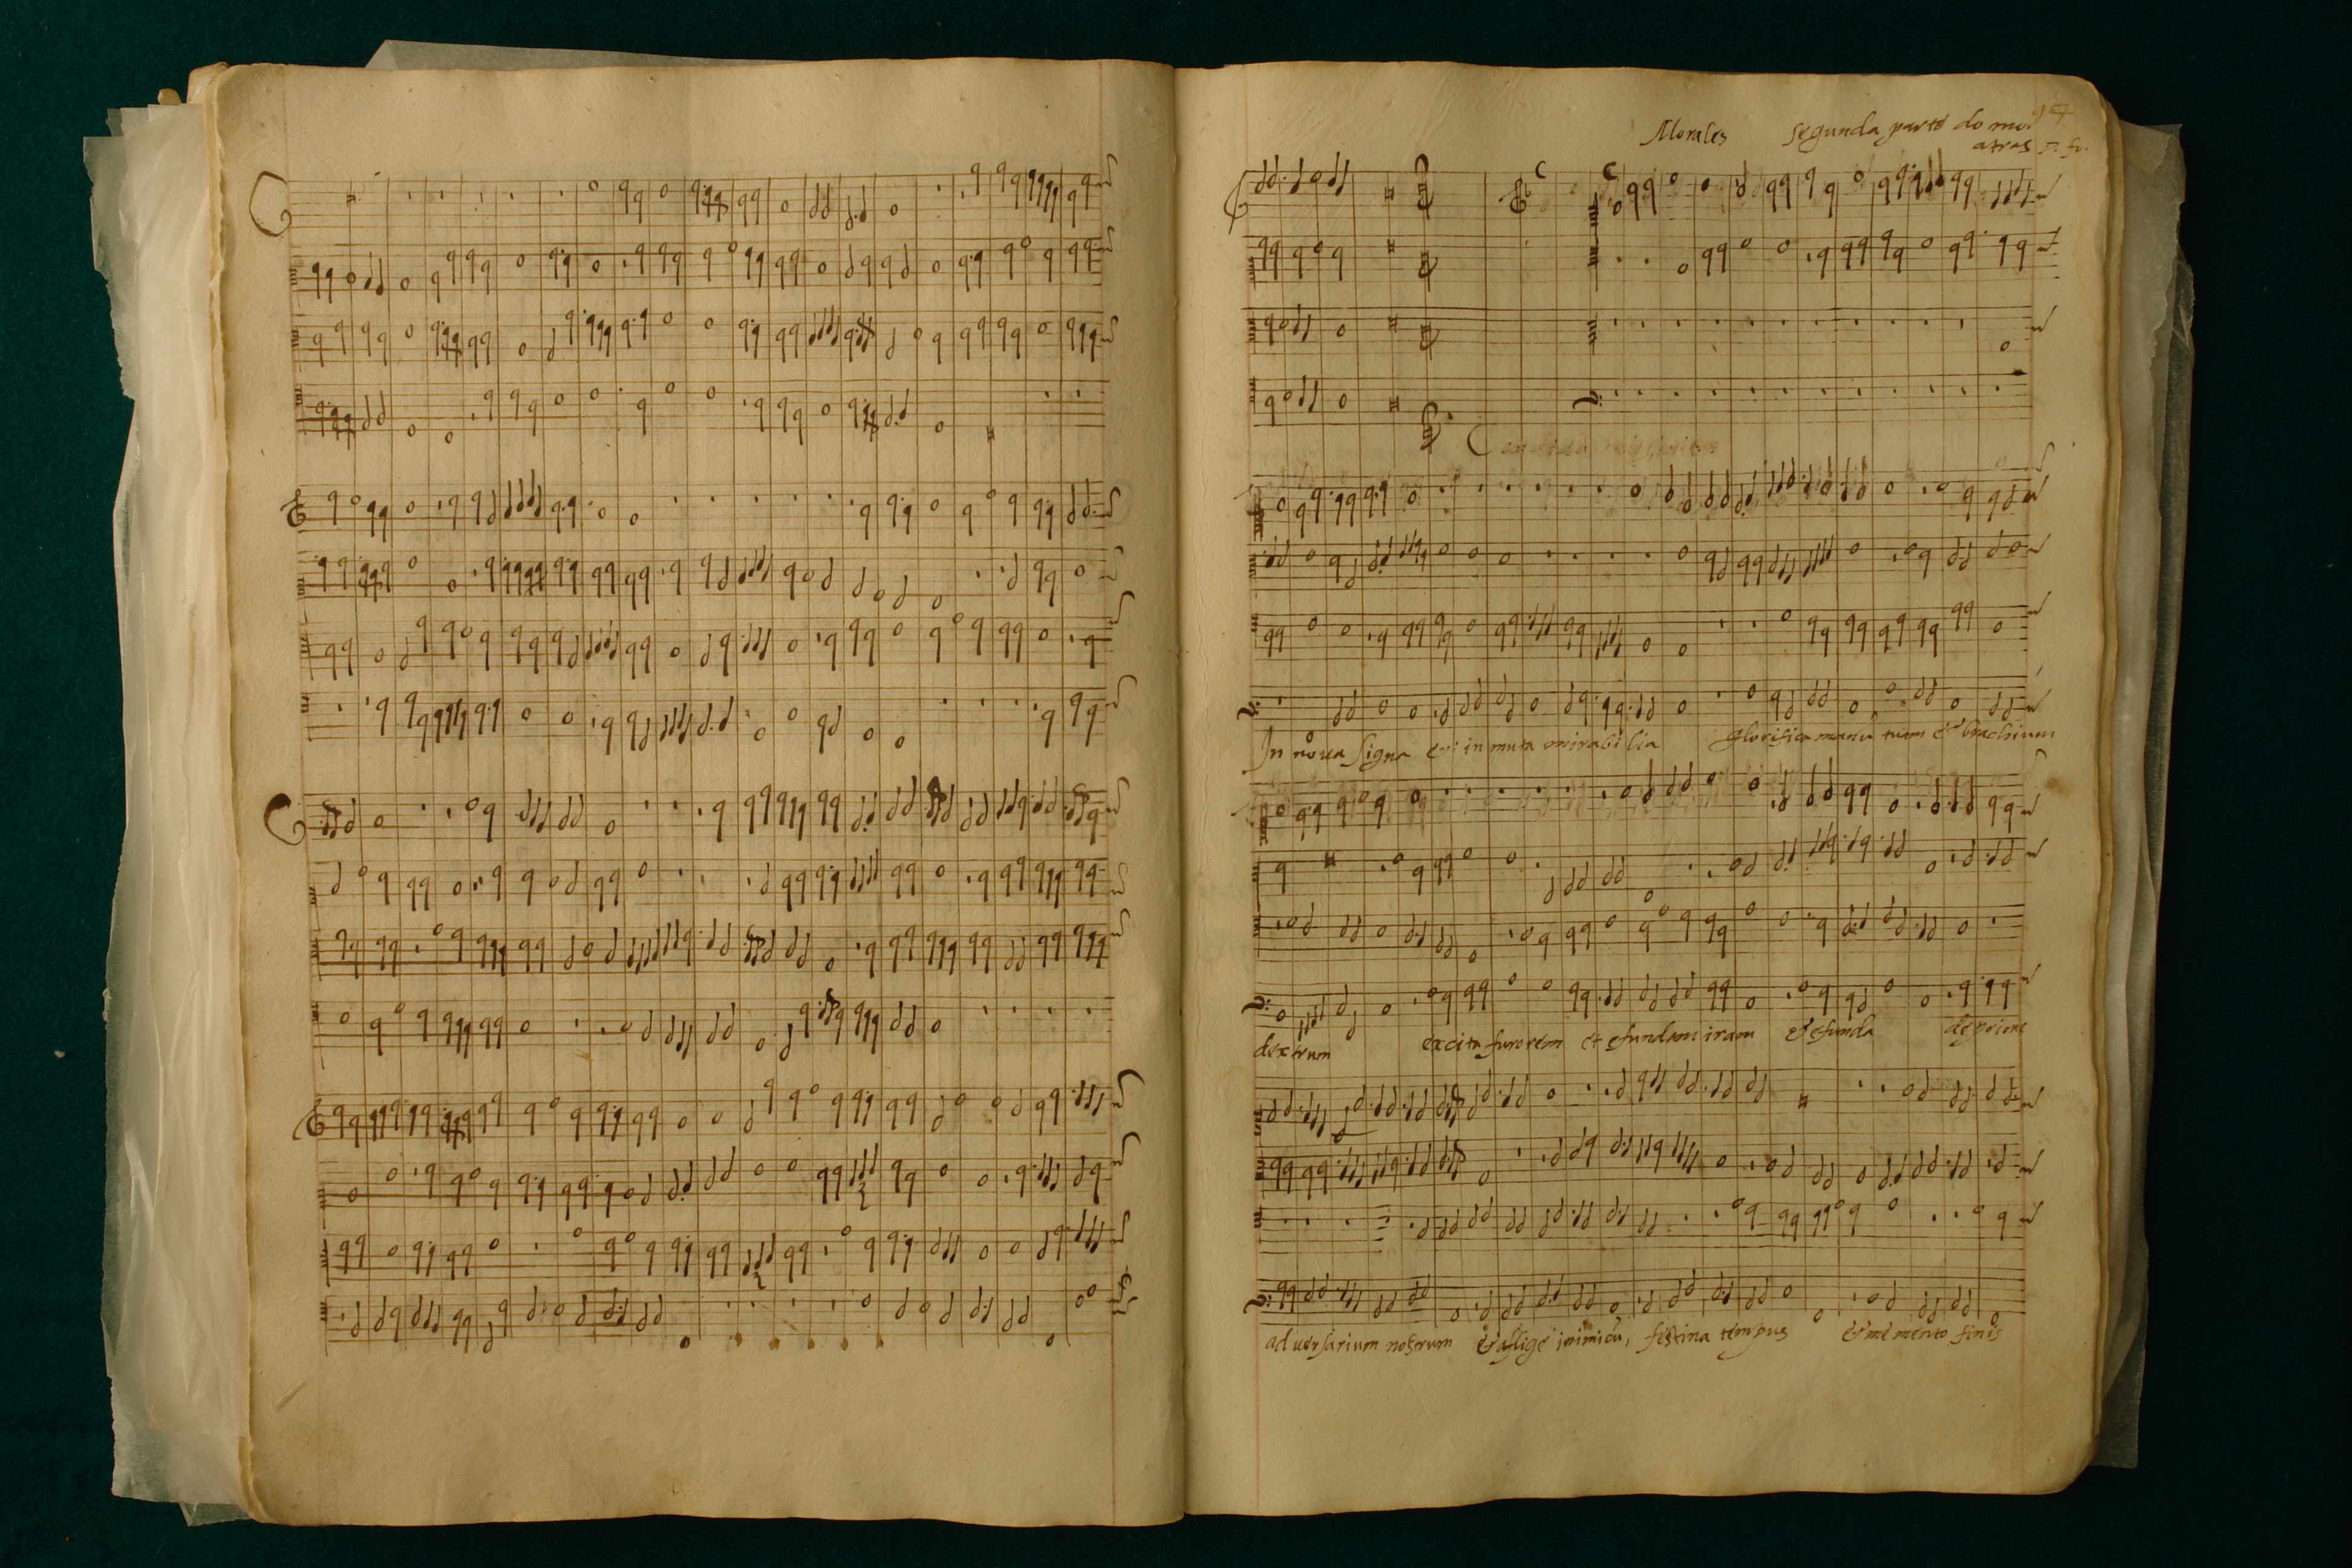 Morales segunda parte do mo
atras
In nova signa et inmuta mirabilia glorifica manũ tuam & brachium
dextrum excita furorem et efundam iram & efunda
adversarium nostrum & aflige inimicũ, festina tempus & memento finis